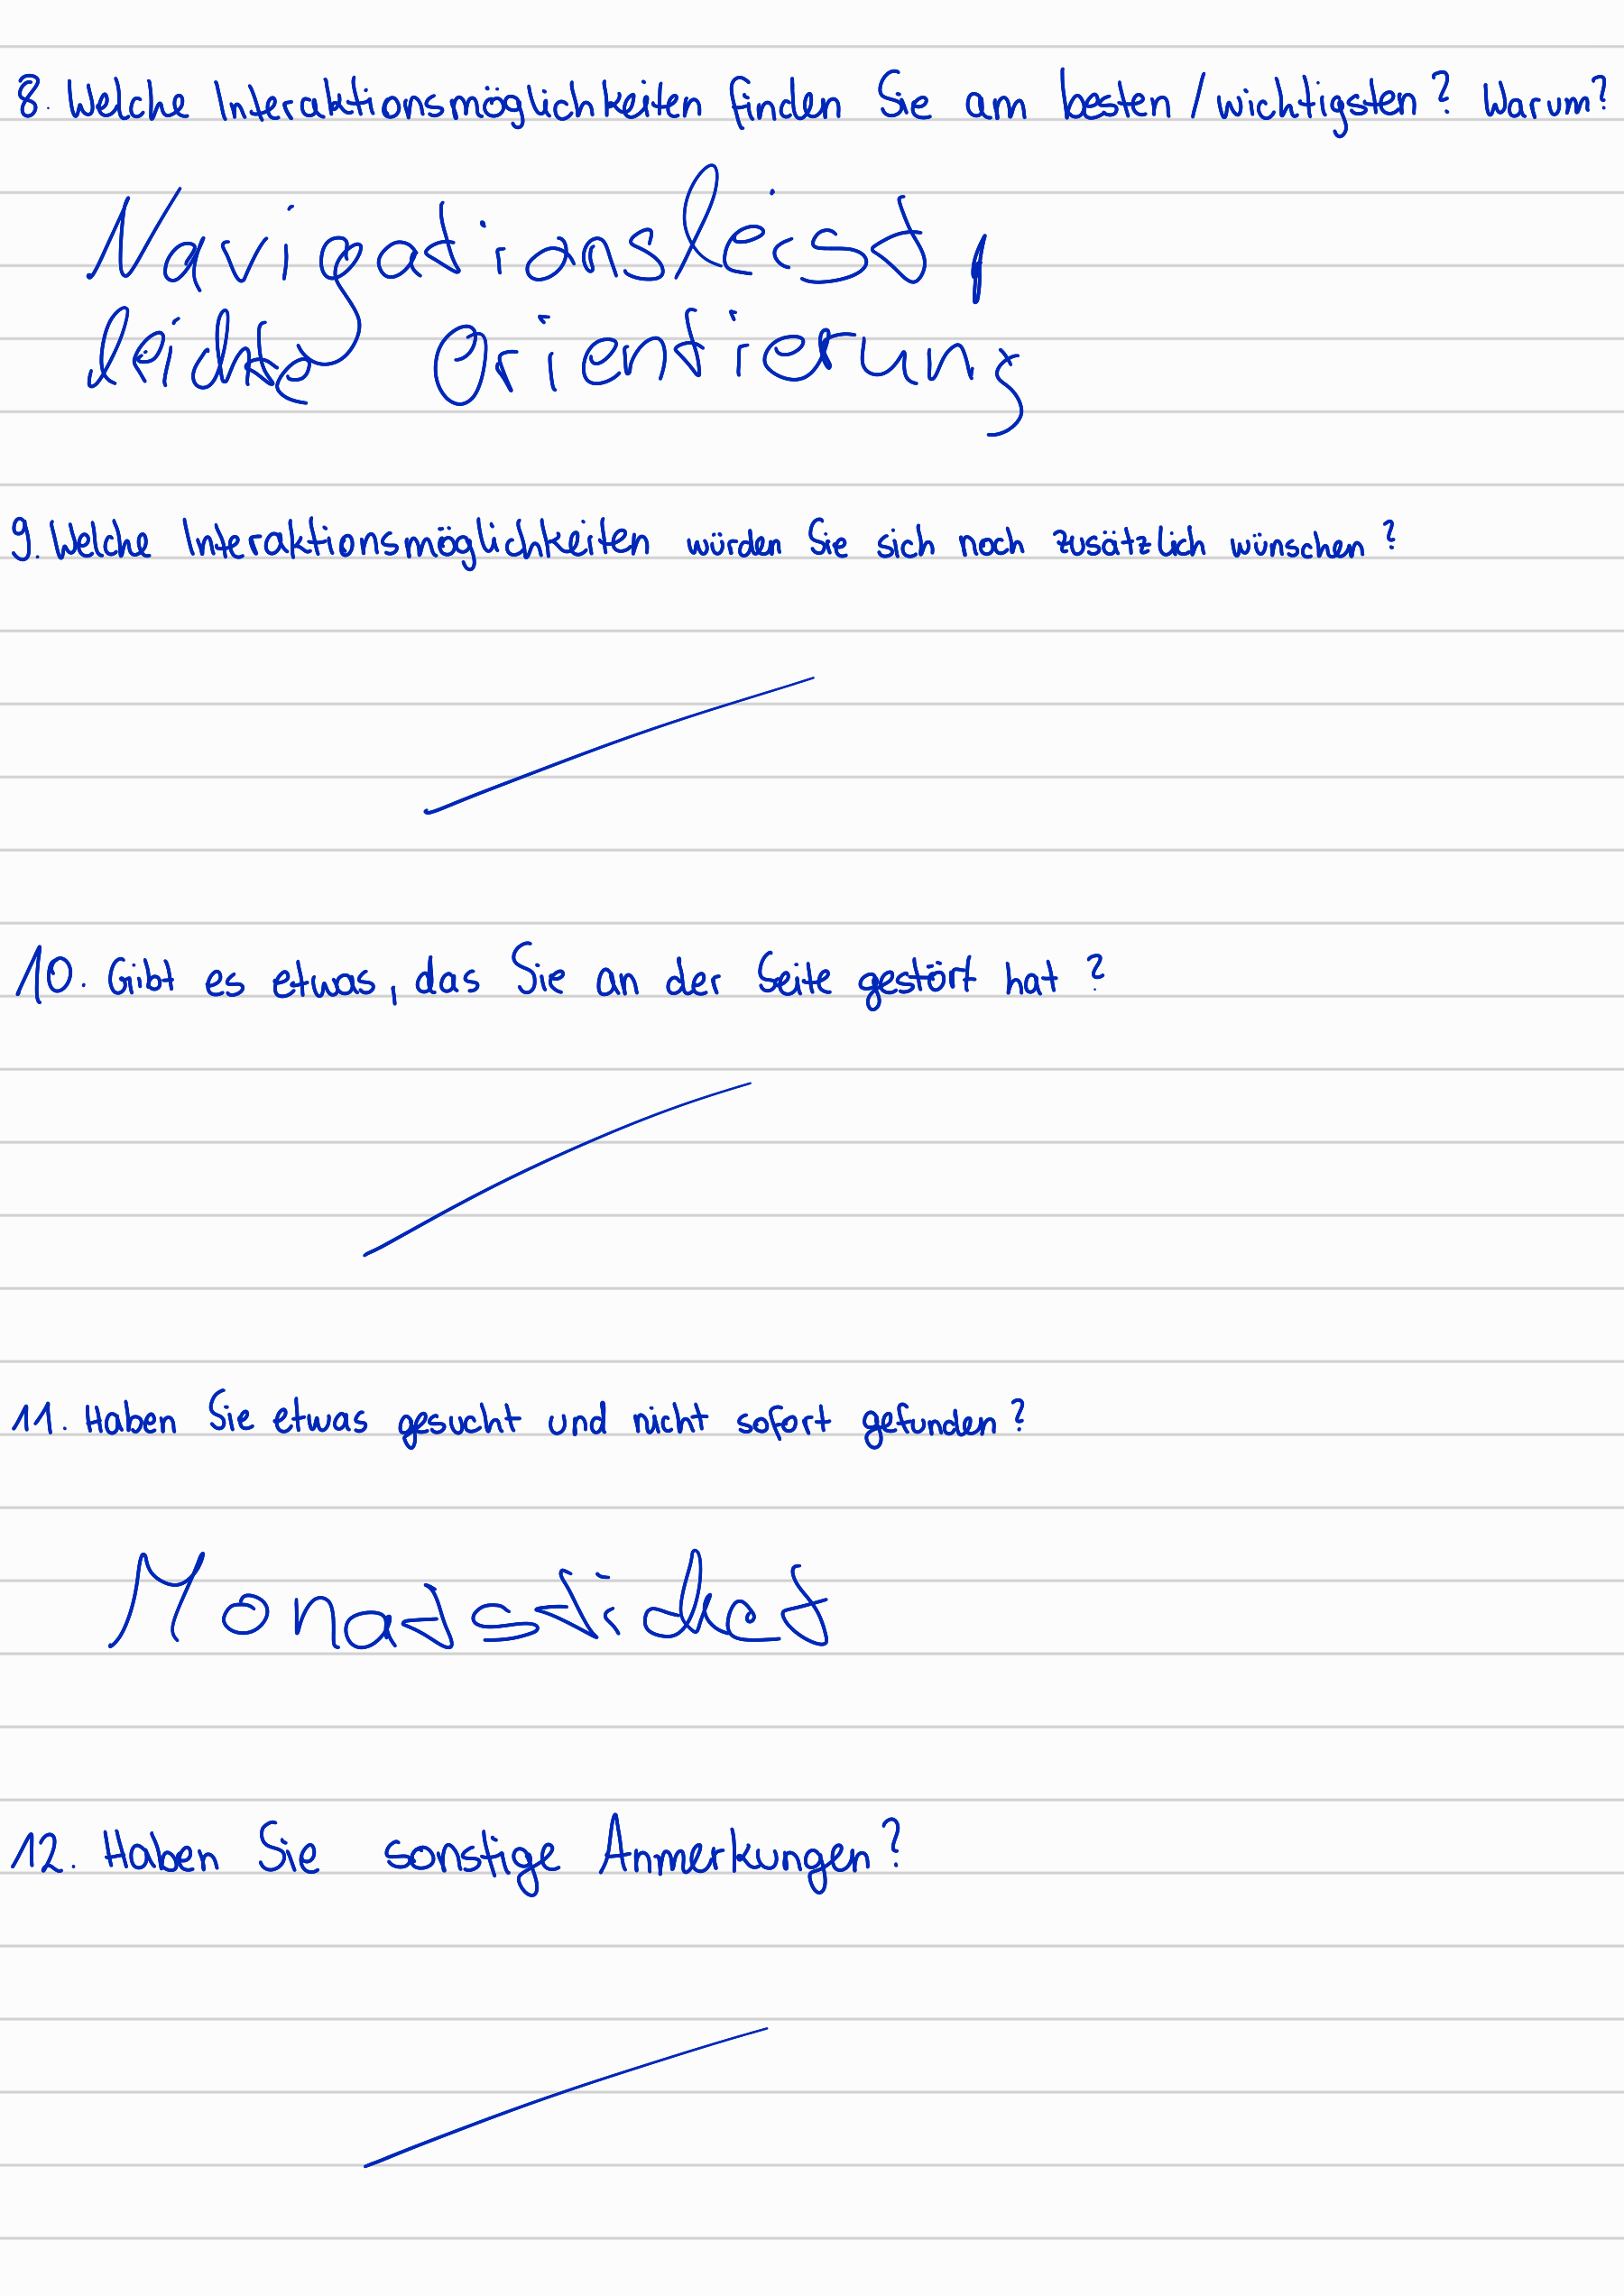 8. Welche Interaktionsmöglichkeiten finden Sie am besten / wichtigsten? Warum?
Navigationsleist,
leichte Orientierung
9. Welche Interaktionsmöglichkeiten würden Sie sich noch zusätzlich wünschen?
10. Gibt es etwas, das Sie an der Seite gestört hat?
11. Haben Sie etwas gesucht und nicht sofort gefunden?
Monatsticket
12. Haben Sie sonstige Anmerkungen?